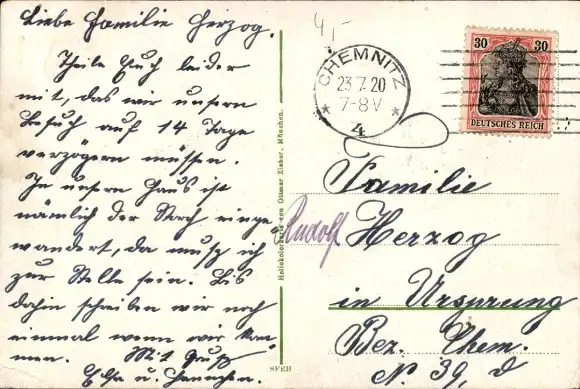 Liebe Familie Herzog.
Theile Euch leider
mit, das wir unsern
Besuch auf 14 Tage
verzögern müssen.
In unsern Haus ist
nämlich der Storch einge
wandert, da muß ich
zur Stelle sein. Bis
dahin schreiben wir noch
einmal wenn wir kom-
men. Mit Gruß
Elsa u.
4,-
CHEMNITZ
23.7.20
7-8V
4
30 30
DEUTSCHES REICH
Heliokolorkarte von Ottmar Zieher, München.
SFEH
Familie
Rudolf Herzog
in Ursprung
Bez. Chem.
No 39, d